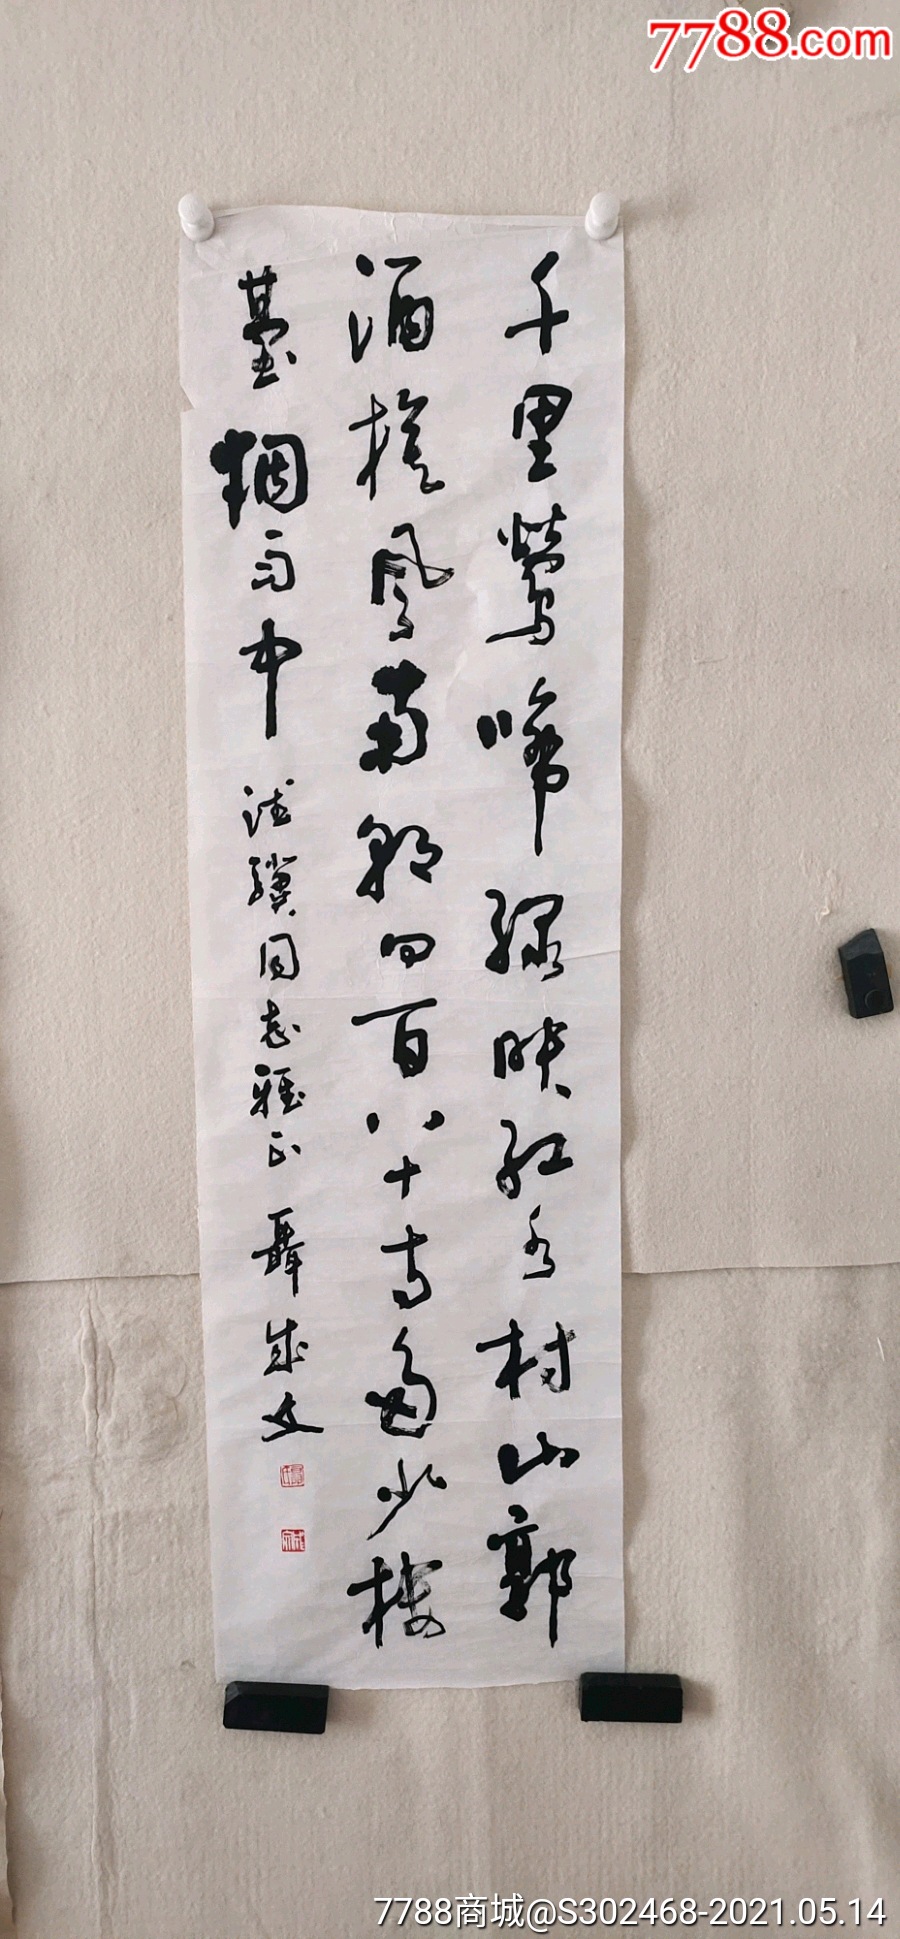 7788.com
千里鶯啼綠映紅水村山郭
酒旗風南朝四百八十寺多少樓
臺烟雨中
同志雅正
聶成文
7788商城@S302468-2021.05.14